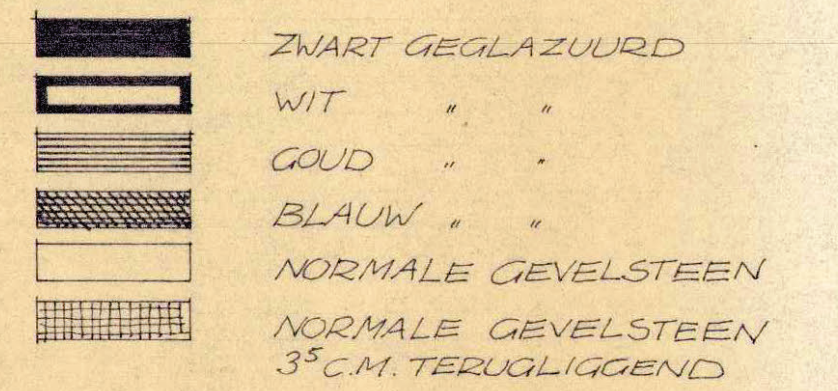 ZWART GEGLAZUURD
WIT " "
GOUD " "
BLAUW " "
NORMALE GEVELSTEEN
NORMALE GEVELSTEEN
3⁵ C.M. TERUGLIGGEND